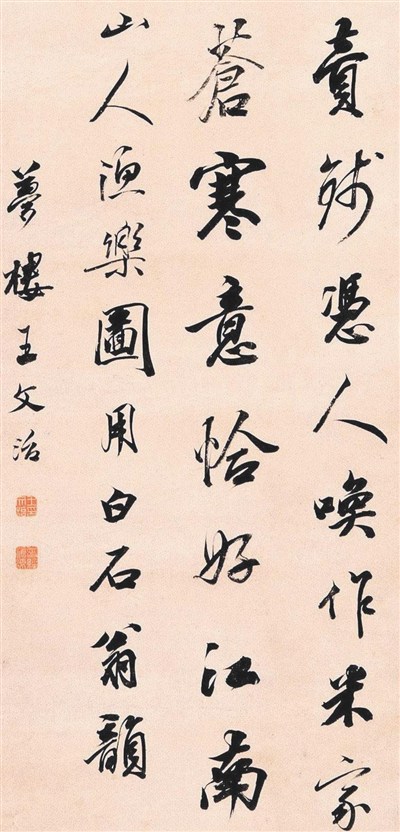 賣錢憑人喚作米家
蒼寒意恰好江南
山人漁樂圖用白石翁韻
夢樓王文治